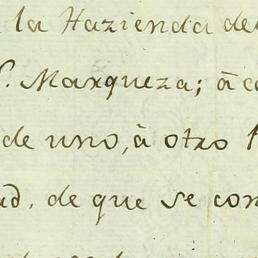 la Hazienda de
S. Marqueza; â
de uno, â otro
ud, de que se con